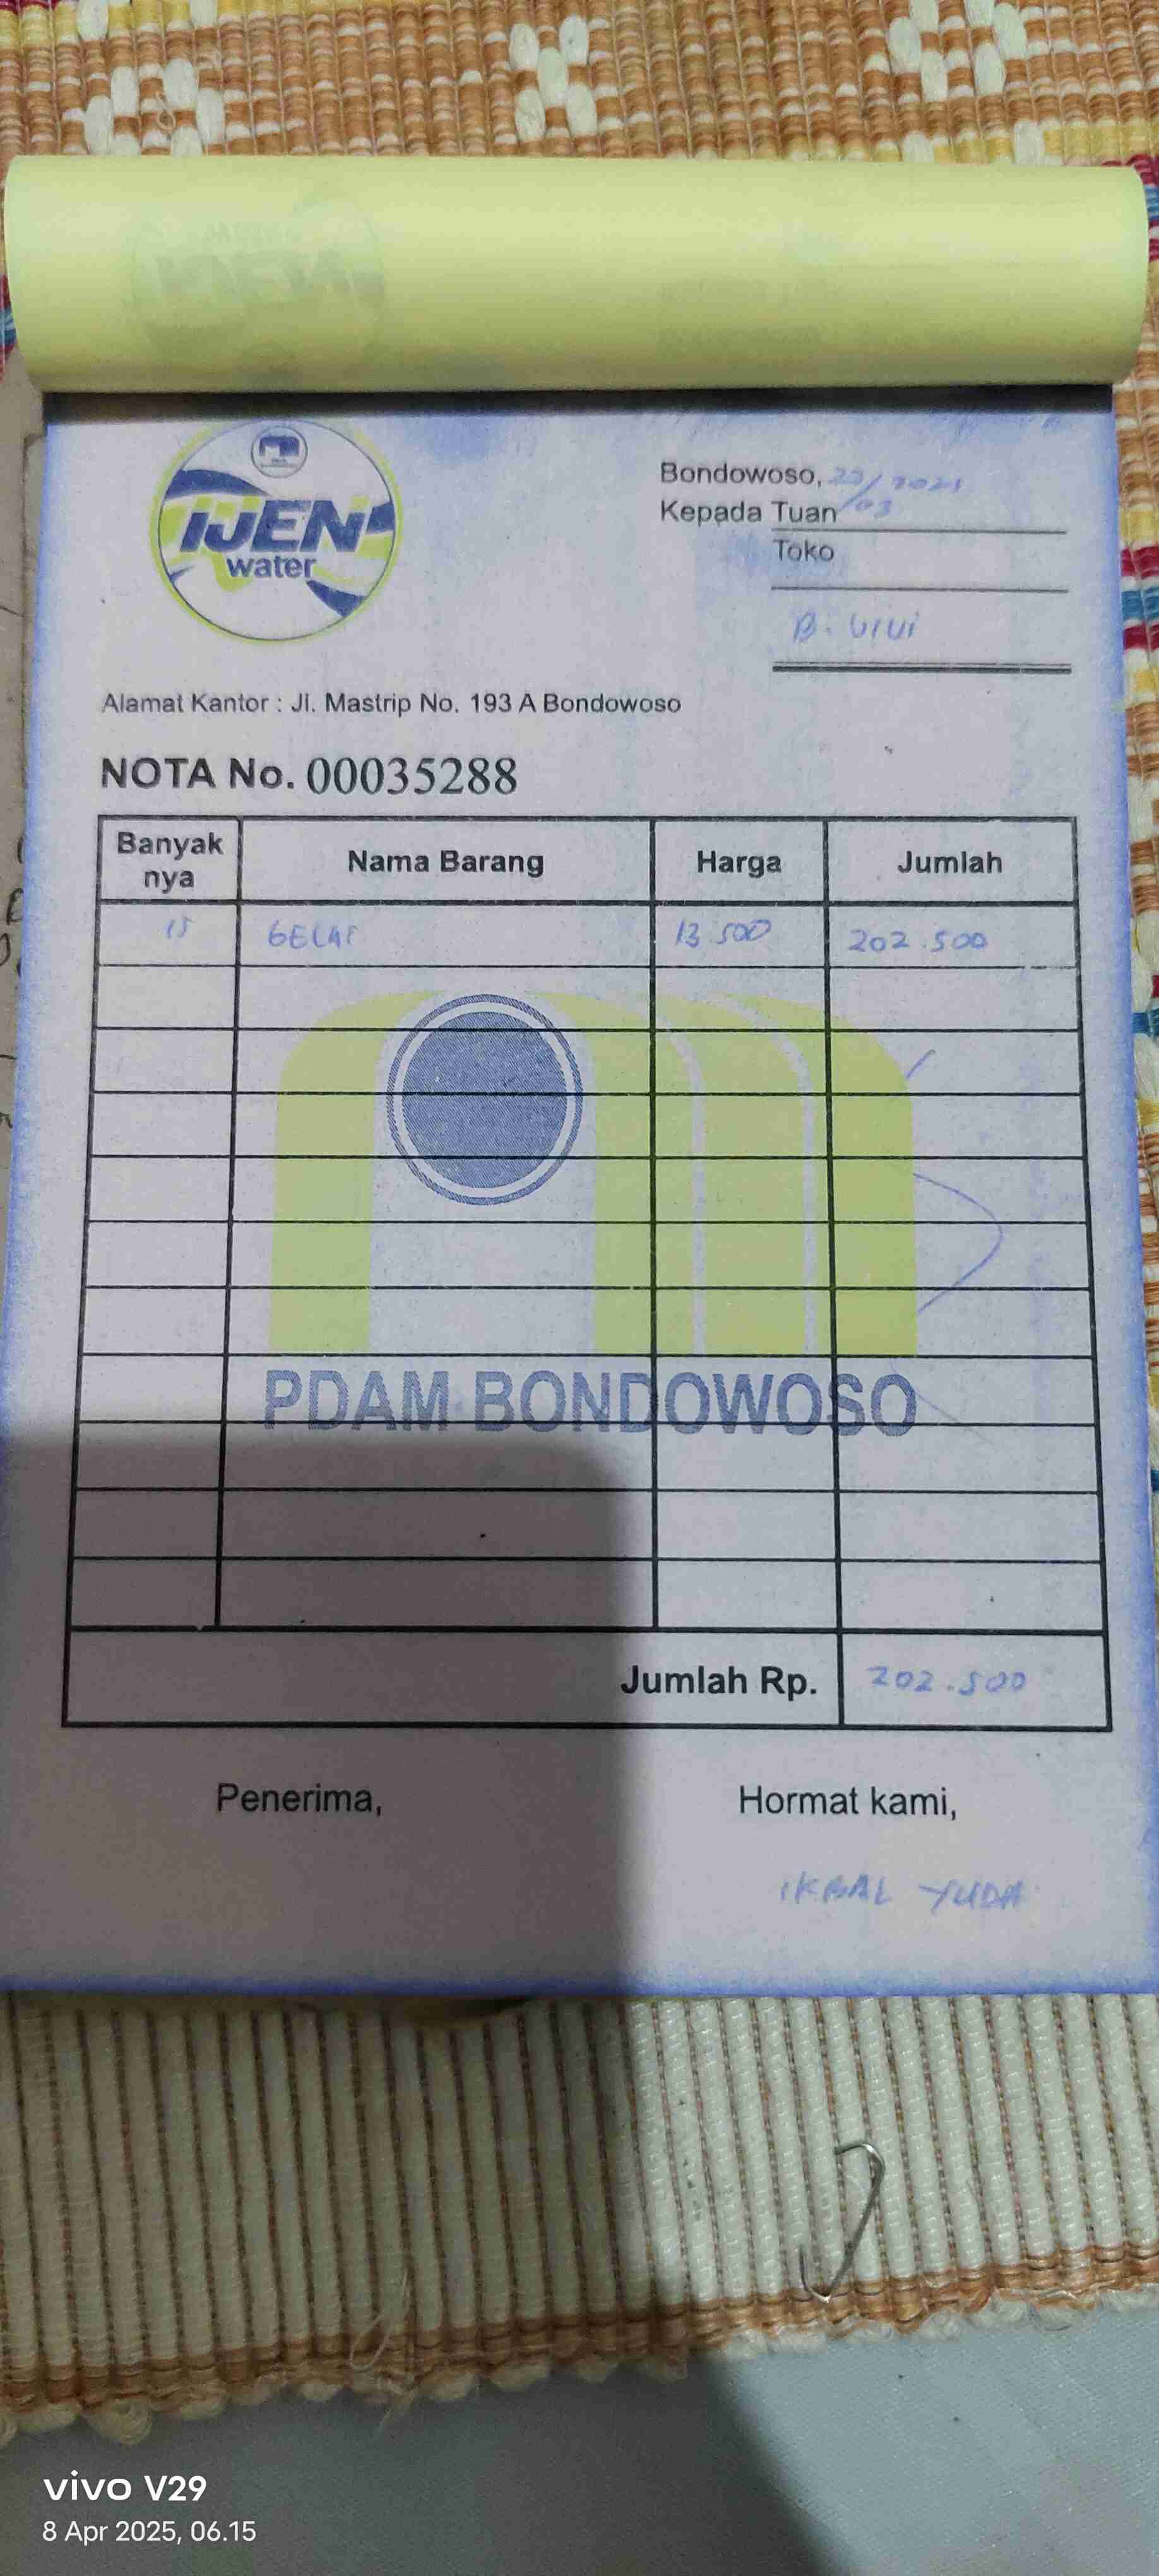 IJEN
water
Bondowoso,
Kepada Tuan
Toko
B. VIVI
Alamat Kantor : Jl. Mastrip No. 193 A Bondowoso
NOTA No. 00035288
Banyak nya Nama Barang Harga Jumlah
15 GELAS 13.500 202.500
PDAM BONDOWOSO
Jumlah Rp. 202.500
Penerima, Hormat kami,
IKBAL YUDA
vivo V29
8 Apr 2025, 06.15